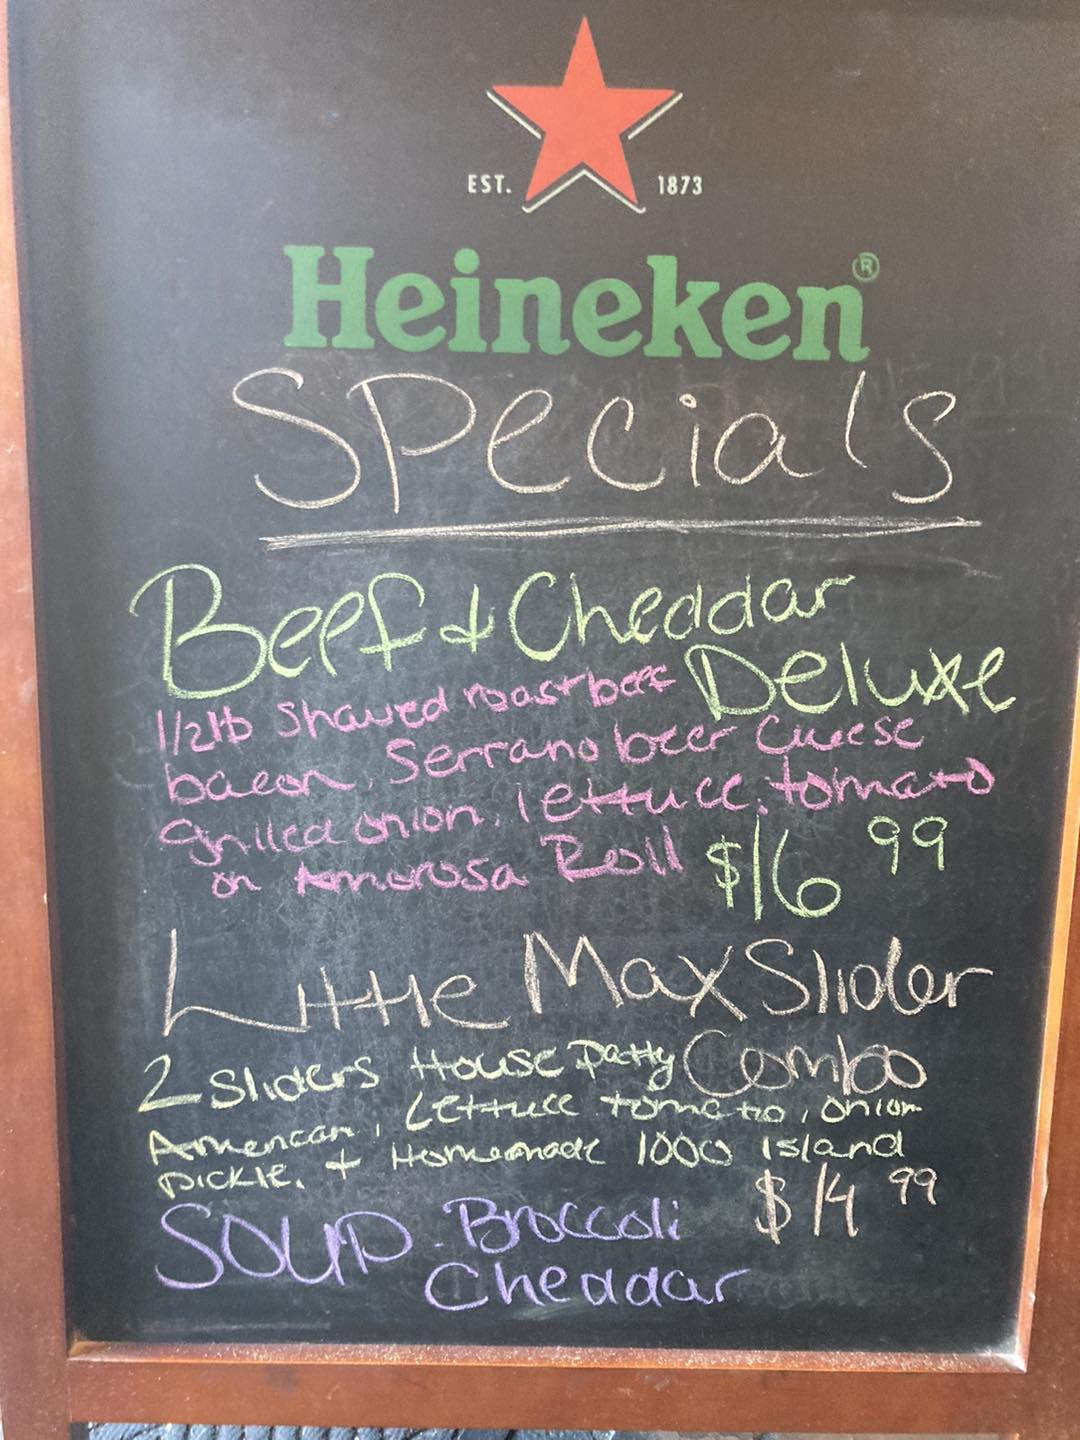 EST. 1873
Heineken®
Specials
Beef & Cheddar
Deluxe
1/2lb Shaved roast beef
bacon, Serrano beer Cheese
grilled onion, lettuce, tomato
on Amorosa Roll $16 99
Little Max Slider
Combo
2 Sliders House Patty
American, Lettuce tomato, onion
pickle, + Homemade 1000 island
$14 99
SOUP - Broccoli
Cheddar